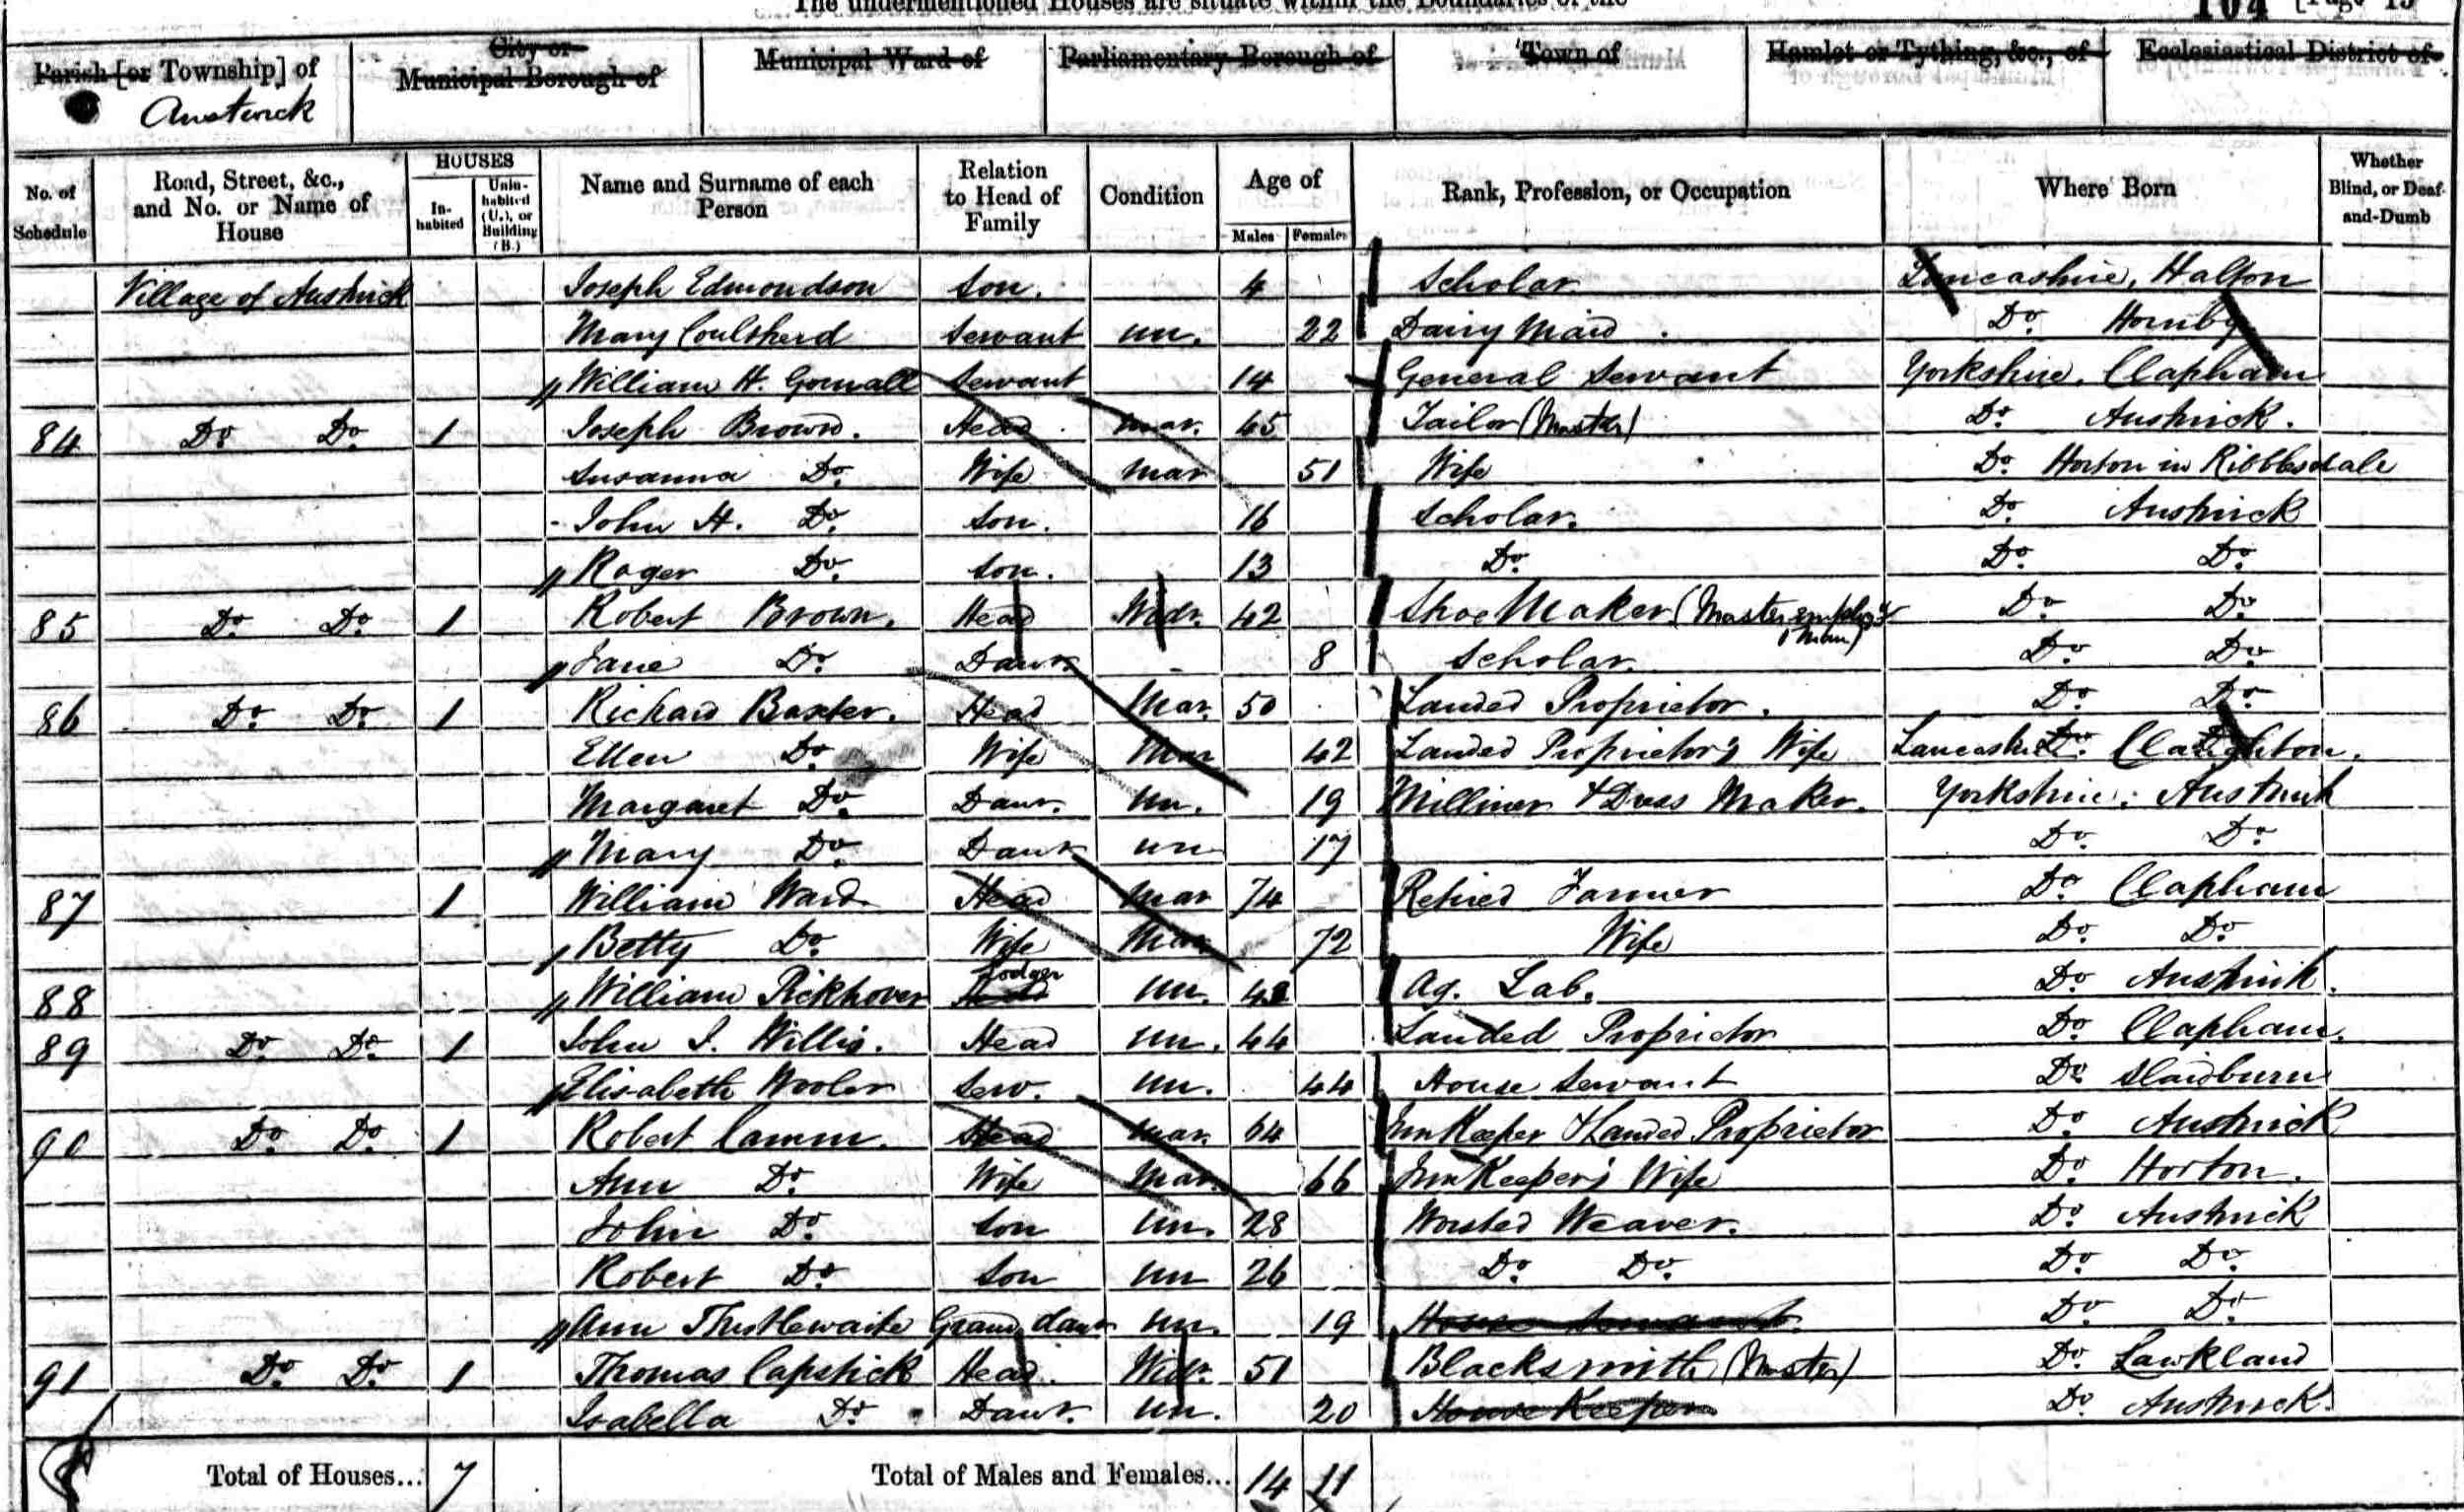 The undermentioned Houses are situate within the Boundaries of the
104 [Page 15
Parish [or Township] of
Austwick
City or Municipal Borough of
Municipal Ward of
Parliamentary Borough of
Town of
Hamlet or Tything, &c., of
Ecclesiastical District of
No. of Schedule
Road, Street, &c., and No. or Name of House
HOUSES
In-habited
Unin-habited (U.), or Building (B.)
Name and Surname of each Person
Relation to Head of Family
Condition
Age of
Males
Females
Rank, Profession, or Occupation
Where Born
Whether Blind, or Deaf-and-Dumb
Village of Austwick Joseph Edmondson Son. 4 Scholar Lancashire, Halton
Mary Coultherd Servant Un. 22 Dairy Maid Do. Hornby
William H. Gornall Servant 14 General Servant Yorkshire. Clapham
84 Do Do 1 Joseph Brown. Head Mar. 45 Tailor (Master) Do. Austwick.
Susanna Do. Wife Mar 51 Wife Do. Horton in Ribblesdale
John H. Do. Son. 16 Scholar. Do. Austwick
Roger Do. Son. 13 Do. Do. Do.
85 Do. Do. 1 Robert Brown. Head Widr. 42 Shoe Maker (Master employg 1 Man) Do. Do.
Jane Do. Daur. - 8 Scholar. Do. Do.
86 Do. Do. 1 Richard Baxter. Head Mar. 50 Landed Proprietor. Do. Do.
Ellen Do. Wife Mar 42 Landed Proprietor's Wife Lancashire Claughton.
Margaret Do. Daur. Un. 19 Milliner & Dress Maker. Yorkshire. Austwick
Mary Do. Daur Un 17 Do. Do.
87 1 William Ward Head Mar 74 Retired Farmer Do. Clapham
Betty Do. Wife Mar 72 Wife Do. Do.
88 William Pickhover Lodger Un. Ag. Lab. Do. Austwick.
89 Do. Do. 1 John I. Willis. Head Un. 44 Landed Proprietor Do. Clapham.
Elisabeth Wooler Serv. Un. 44 House Servant Do. Slaidburn
90 Do. Do. 1 Robert Camm. Head Mar. 64 Inn Keeper & Landed Proprietor Do. Austwick
Ann Do. Wife Mar. 66 Inn Keeper's Wife Do. Horton.
John Do. Son Un. 28 Worsted Weaver. Do. Austwick
Robert Do. Son Un 26 Do. Do. Do. Do.
Ann Thistlewaite Grand daur Un. 19 House Servant. Do. Do.
91 Do. Do. 1 Thomas Capstick Head. Widr. 51 Blacksmith (Master) Do. Lawkland
Isabella Do. Daur. Un. 20 House Keeper Do. Austwick.
Total of Houses... 7 Total of Males and Females... 14 11